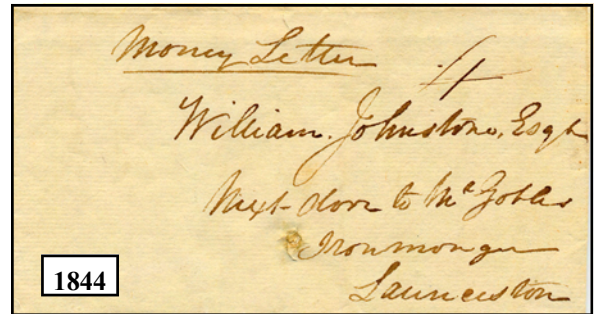 Money Letter 4
William Johnstone, Esqr
Next door to Mr
Ironmonger
Launceston
1844